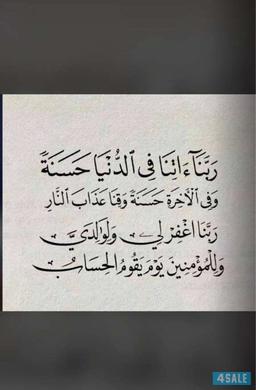 رَبَّنَآ ءَاتِنَا فِي ٱلدُّنْيَا حَسَنَةً
وَفِي ٱلْآخِرَةِ حَسَنَةً وَقِنَا عَذَابَ ٱلنَّارِ
رَبَّنَا ٱغْفِرْ لِي وَلِوَالِدَيَّ
وَلِلْمُؤْمِنِينَ يَوْمَ يَقُومُ ٱلْحِسَابُ
4SALE